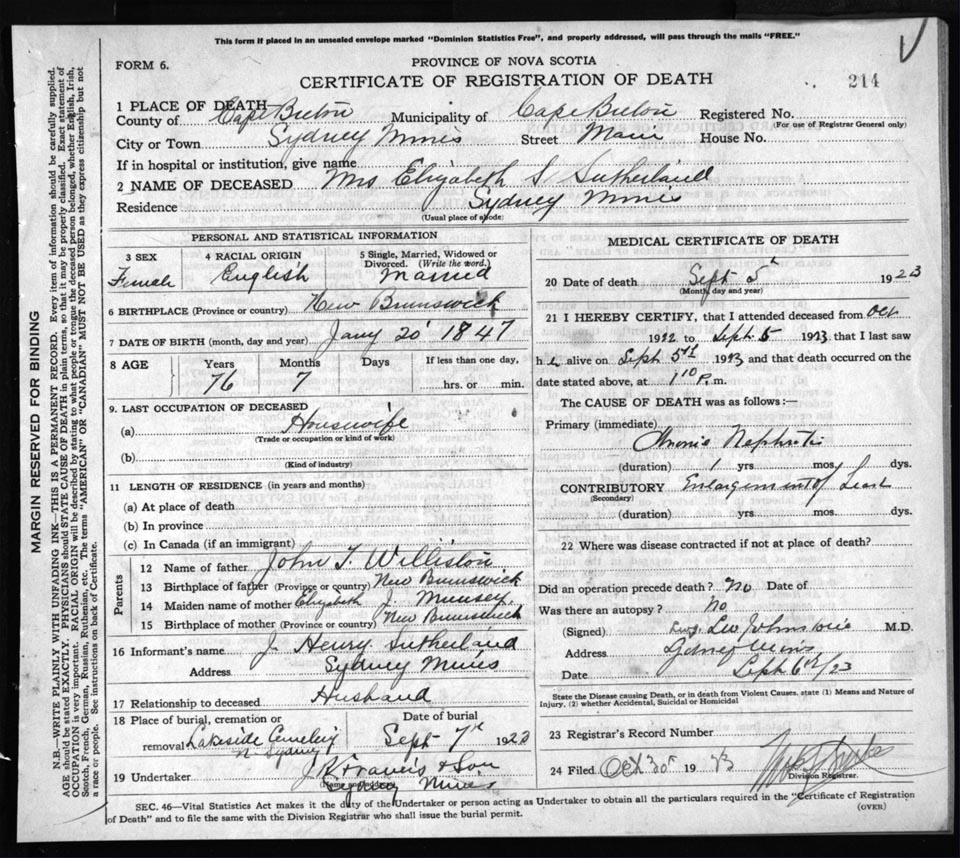 This form if placed in an unsealed envelope marked "Dominion Statistics Free", and properly addressed, will pass through the mails "FREE."
FORM 6.
PROVINCE OF NOVA SCOTIA
CERTIFICATE OF REGISTRATION OF DEATH
214
1 PLACE OF DEATH
County of Cape Breton Municipality of Cape Breton Registered No.
(For use of Registrar General only)
City or Town Sydney Mines Street Main House No.
If in hospital or institution, give name
2 NAME OF DECEASED Mrs Elizabeth S Sutherland
Residence Sydney Mines
(Usual place of abode)
PERSONAL AND STATISTICAL INFORMATION
3 SEX 4 RACIAL ORIGIN 5 Single, Married, Widowed or Divorced. (Write the word.)
Female English Married
6 BIRTHPLACE (Province or country) New Brunswick
7 DATE OF BIRTH (month, day and year) Jany 20 1847
8 AGE Years Months Days If less than one day,
76 7 hrs. or min.
9. LAST OCCUPATION OF DECEASED
(a) Housewife
(Trade or occupation or kind of work)
(b)
(Kind of industry)
11 LENGTH OF RESIDENCE (in years and months)
(a) At place of death
(b) In province
(c) In Canada (if an immigrant)
Parents
12 Name of father John T. Williston
13 Birthplace of father (Province or country) New Brunswick
14 Maiden name of mother Elizabeth J. Munsey
15 Birthplace of mother (Province or country) New Brunswick
16 Informant's name J. Henry Sutherland
Address Sydney Mines
17 Relationship to deceased Husband
18 Place of burial, cremation or Date of burial
removal Lakeside Cemetery Sept 7th 1923
N. Sydney
19 Undertaker J. R Francis & Son
Sydney Mines
MEDICAL CERTIFICATE OF DEATH
20 Date of death Sept 5th 1923
(Month, day and year)
21 I HEREBY CERTIFY, that I attended deceased from Oct
1922 to Sept 5 1923 that I last saw
h er alive on Sept 5th 1923 and that death occurred on the
date stated above, at 1 10 P. m.
The CAUSE OF DEATH was as follows:—
Primary (immediate)
Chronic Nephritis
(duration) 1 yrs mos. dys.
CONTRIBUTORY Enlargement of heart
(Secondary)
(duration) yrs. mos. dys.
22 Where was disease contracted if not at place of death?
Did an operation precede death? No Date of
Was there an autopsy? No
(Signed) M.D.
Address Sydney Mines
Sept 6th/23
State the Disease causing Death, or in death from Violent Causes, state (1) Means and Nature of
Injury, (2) whether Accidental, Suicidal or Homicidal
23 Registrar's Record Number
24 Filed Oct 30th 1923
Division Registrar.
SEC. 46—Vital Statistics Act makes it the duty of the Undertaker or person acting as Undertaker to obtain all the particulars required in the "Certificate of Registration
of Death" and to file the same with the Division Registrar who shall issue the burial permit.
(OVER)
MARGIN RESERVED FOR BINDING
N.B.—WRITE PLAINLY WITH UNFADING INK—THIS IS A PERMANENT RECORD. Every item of information should be carefully supplied.
AGE should be stated EXACTLY. PHYSICIANS should STATE CAUSE OF DEATH in plain terms, so that it may be properly classified. Exact statement of
OCCUPATION is very important. RACIAL ORIGIN will be described by stating to what people or tongue the deceased person belonged, whether English, Irish,
Scotch, French, German, Russian, Ruthenian, etc. The terms "AMERICAN" OR "CANADIAN" MUST NOT BE USED as they express citizenship but not
a race or people. See instructions on back of Certificate.